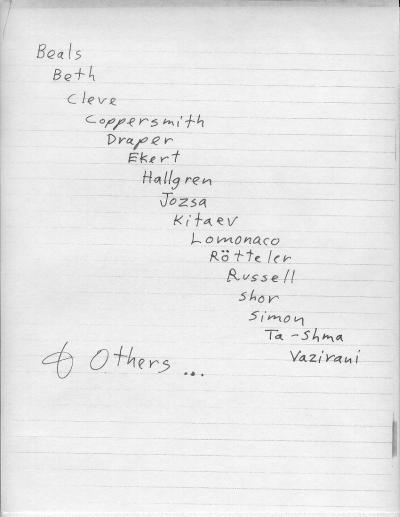 Beals
Beth
Cleve
Coppersmith
Draper
Ekert
Hallgren
Jozsa
Kitaev
Lomonaco
Rötteler
Russell
Shor
Simon
Ta-Shma
Vazirani
& Others ...